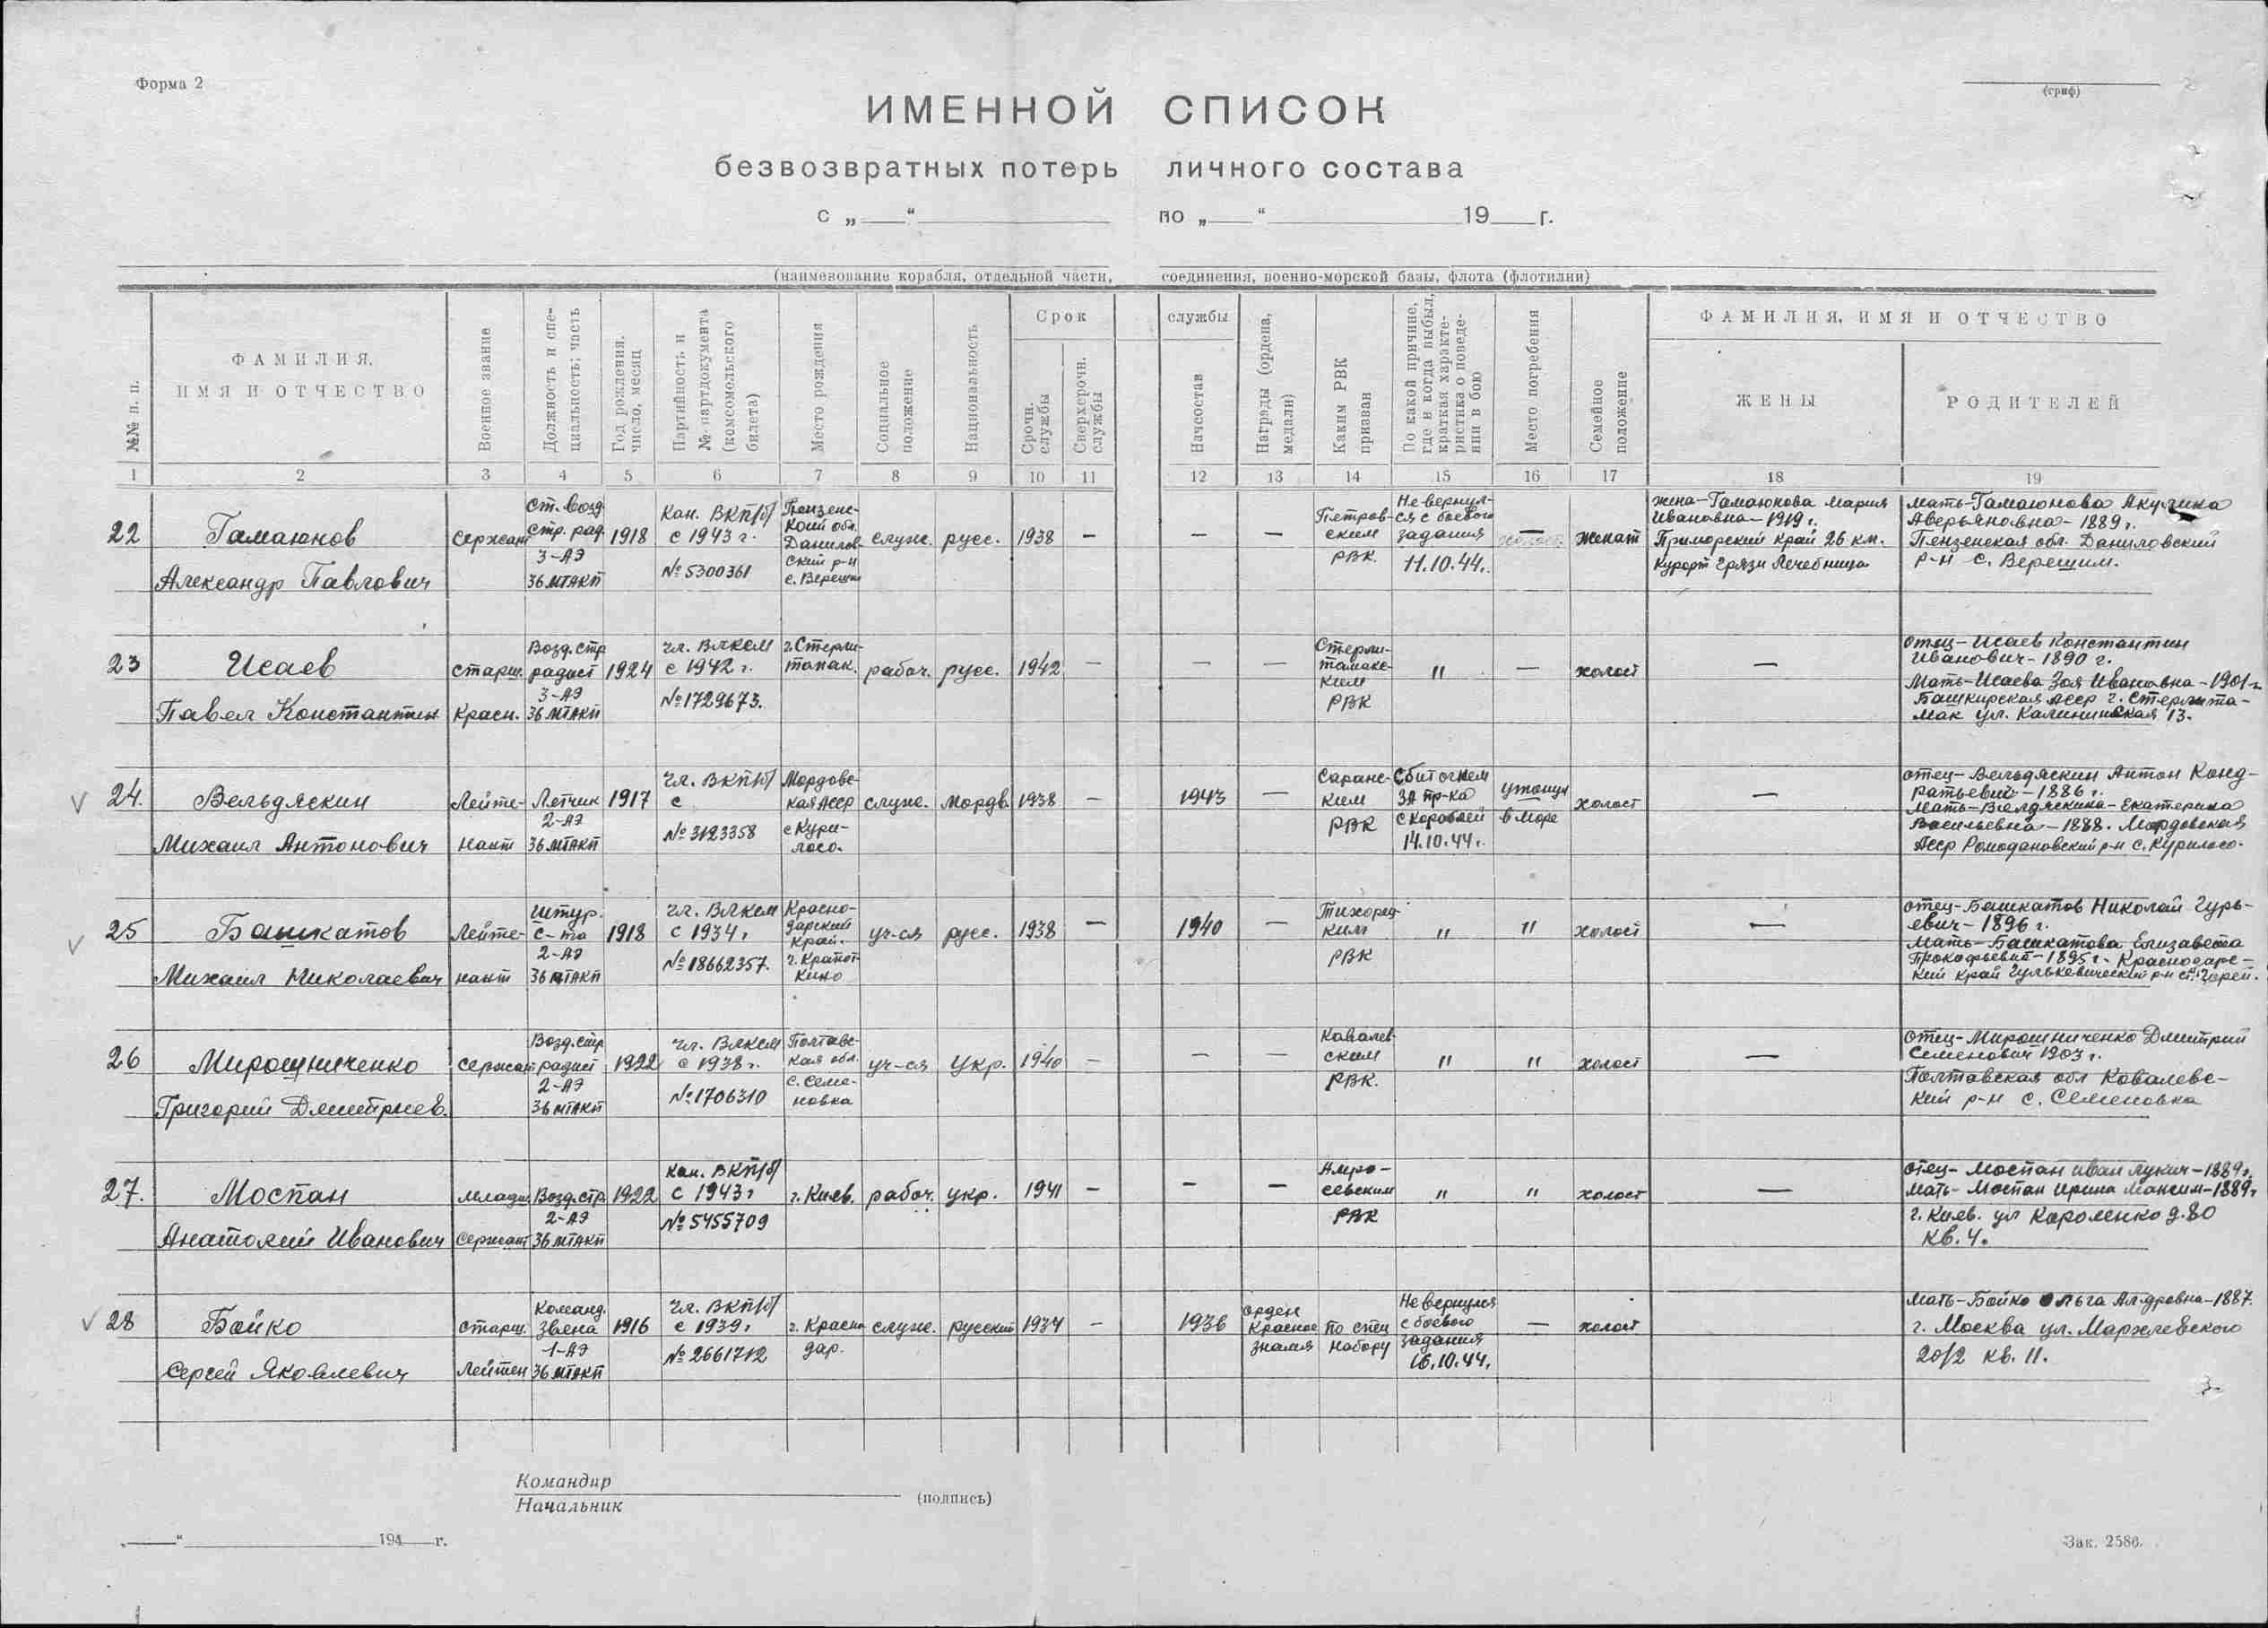 Форма 2
(гриф)
ИМЕННОЙ СПИСОК
безвозвратных потерь личного состава
с „ “ по „ “ 19 г.
(наименование корабля, отдельной части, соединения, военно-морской базы, флота (флотилии)
№№ п. п.
ФАМИЛИЯ,
ИМЯ И ОТЧЕСТВО
Военное звание
Должность и спе-
циальность; часть
Год рождения,
число, месяц
Партийность и
№ партдокумента
(комсомольского
билета)
Место рождения
Социальное
положение
Национальность
Срок службы
Срочн.
службы
Сверхсрочн.
службы
Начсостав
Награды (ордена,
медали)
Каким РВК
призван
По какой причине,
где и когда выбыл,
краткая характе-
ристика о поведе-
нии в бою
Место погребения
Семейное
положение
ФАМИЛИЯ, ИМЯ И ОТЧЕСТВО
ЖЕНЫ
РОДИТЕЛЕЙ
1 2 3 4 5 6 7 8 9 10 11 12 13 14 15 16 17 18 19
22
Гамаюнов
Александр Павлович
Сержант
Ст. возд
стр. рад.
3-АЭ
36 МТАКП
1918
Кан. ВКП/б/
с 1943 г.
№ 5300361
Пензенс-
кой обл.
Данилов-
ский р-н
служ.
русс.
1938
—
—
—
Петров-
ским
РВК.
Не вернул-
ся с боевого
задания
11.10.44г.
—
женат
жена-Гамаюнова Мария
Ивановна-1919г.
Приморский край 26 км.
Курорт Грязи Лечебница
мать-Гамаюнова Акулина
Аверьяновна-1889г.
Пензенская обл. Даниловский
р-н с. Верешим.
23
Исаев
Павел Константин
Старш.
Красн.
Возд. стр
радист
3-АЭ
36 МТАКП
1924
Чл. ВЛКСМ
с 1942 г.
№ 1729673.
г. Стерли-
рабоч.
русс.
1942
—
—
—
Стерли-
тамакс-
ким
РВК
"
—
холост
—
отец-Исаев Константин
Иванович-1890 г.
Мать-Исаева Зоя Ивановна-1901г
Башкирская АССР г. Стерлита-
мак ул. Калининская 13.
24.
Вельдяскин
Михаил Антонович
Лейте-
нант
Летчик
2-АЭ
36 МТАКП
1917
Чл. ВКП/б/
с
№ 3123358
Мордовс-
кая АССР
с Кури-
лово.
служ.
мордв.
1938
—
1943
—
Саранс-
ким
РВК
Сбит огнем
ЗА пр-ка
с кораблей
14.10.44г.
утонул
в море
холост
—
отец-Вельдяскин Антон Конд-
ратьевич-1886г.
Мать-Вельдяскина-Екатерина
Васильевна-1888. Мордовская
АССР Ромодановский р-н с. Курилово.
25
Башкатов
Михаил Николаевич
Лейте-
нант
Штур.
с-та
2-АЭ
36 МТАКП
1918
Чл. ВЛКСМ
с 1934г
№ 18662357.
Красно-
дарский
край.
г. Кропот-
кино
уч-ся
русс.
1938
—
1940
—
Тихорец-
ким
РВК
"
"
холост
—
отец-Башкатов Николай Гурь-
евич-1896г.
Мать-Башкатова Елизавета
Прокофьевна-1895г. Краснодарс-
кий край Гулькевический р-н
26
Мирошниченко
Григорий Дмитриев.
Сержант
Возд. стр
радист
2-АЭ
36 МТАКП
1922
Чл. ВЛКСМ
с 1938г.
№ 1706310
Полтавс-
кая обл.
с. Семе-
новка
уч-ся
Укр.
1940
—
—
—
Ковалев-
ским
РВК.
"
"
холост
—
Отец-Мирошниченко Дмитрий
Семенович 1903г.
Полтавская обл Ковалевс-
кий р-н с. Семеновка
27.
Моспан
Анатолий Иванович
младш.
Сержант
Возд. стр
2-АЭ
36 МТАКП
1922
Кан. ВКП/б/
с 1943г
№ 5455709
г. Киев.
рабоч.
укр.
1941
—
—
—
севским
РВК
"
"
холост
—
отец-Моспан Иван Лукич-1889г.
Мать-Моспан Ирина Максим-1889г
г. Киев. ул Короленко д.80
кв. 4.
28
Бойко
Сергей Яковлевич
Старш.
Лейтен
Команд.
Звена
1-АЭ
36 МТАКП
1916
Чл. ВКП/б/
с 1939г
№ 2661712
г. Красно
дар.
служ.
русский
1934
—
1936
орден
Красное
знамя
По спец
набору
Не вернулся
с боевого
задания
16.10.44.
—
холост
Мать-Бойко Ольга Ал-дровна-1887.
г. Москва ул. Мархлевского
20/2 кв. 11.
Командир
Начальник
(подпись)
„ “ 194 г.
Зак. 2586.